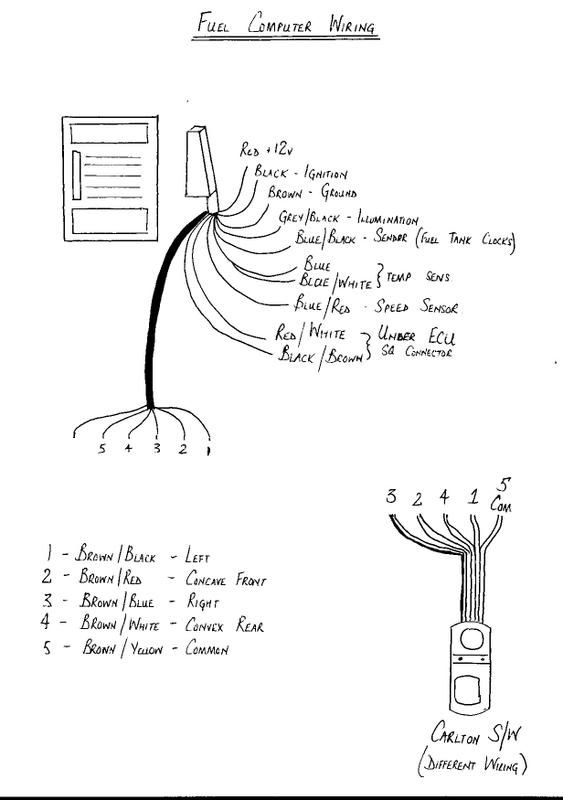 FUEL COMPUTER WIRING
RED +12V
BLACK - IGNITION
BROWN - GROUND
GREY/BLACK - ILLUMINATION
BLUE/BLACK - SENDOR (FUEL TANK CLOCKS)
BLUE
BLUE/WHITE } TEMP SENS
BLUE/RED - SPEED SENSOR
RED/WHITE } UNDER ECU
BLACK/BROWN } SQ CONNECTOR
5 4 3 2 1
3 2 4 1 5
COM
1 - BROWN/BLACK - LEFT
2 - BROWN/RED - CONCAVE FRONT
3 - BROWN/BLUE - RIGHT
4 - BROWN/WHITE - CONVEX REAR
5 - BROWN/YELLOW - COMMON
CARLTON S/W
(DIFFERENT WIRING)